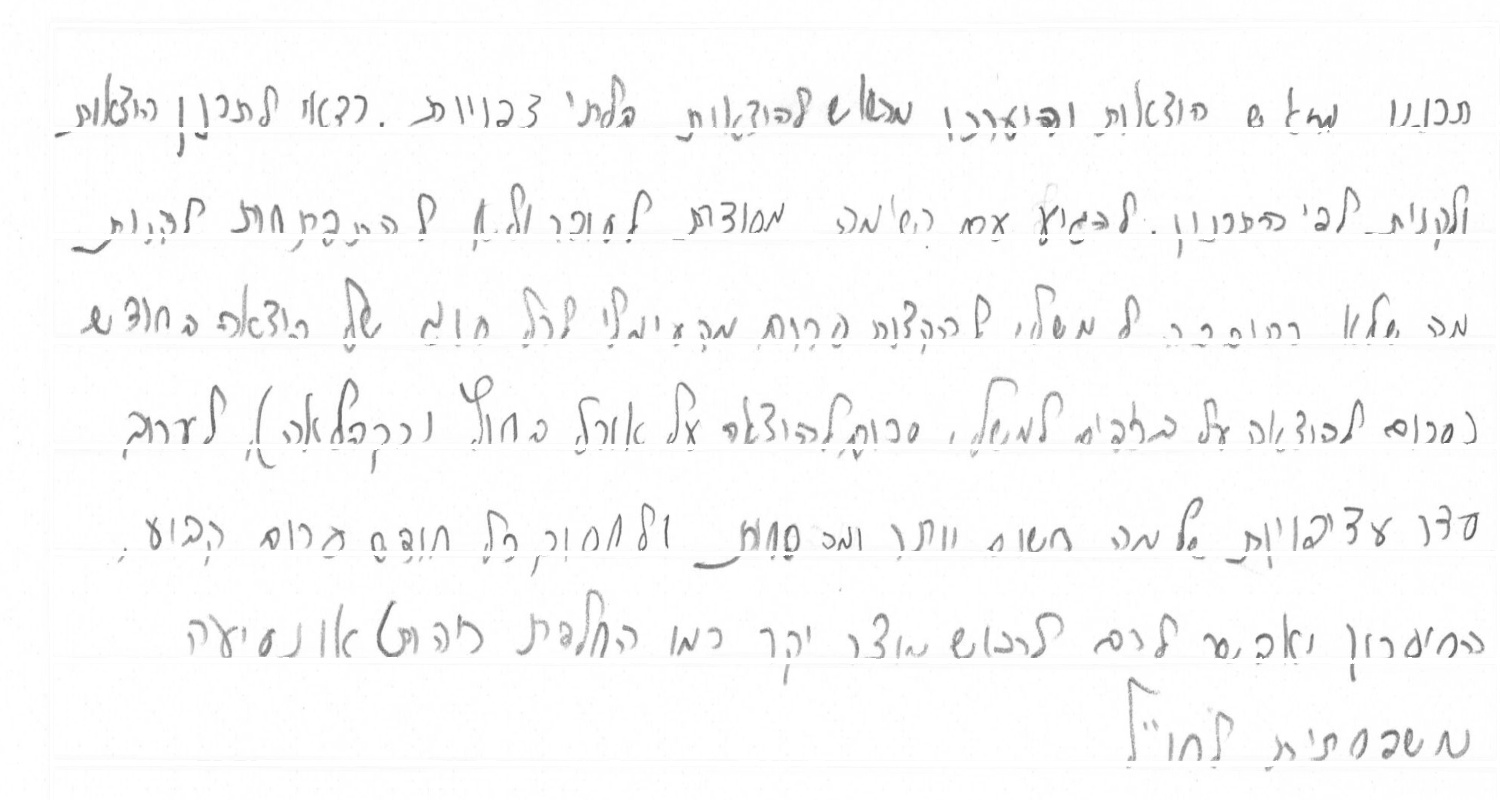 תכננו מראש הוצאות והיערכו מראש להוצאות בלתי צפויות. כדאי לתכנן הוצאות
ולקנות לפי התכנון. להגיע עם רשימה מסודרת לסופר ולא להתפתחות לקנות
מה שלא בתוכנית למשל, להקצות סכום מקסימלי לכל סוג של הוצאה בחודש
(סכום להוצאה על בגדים למשל, סכום להוצאה על אוכל בחוץ וכך הלאה), לערוך
סדר עדיפויות של מה חשוב יותר ומה פחות ולחסוך כל חודש סכום קבוע.
החיסכון יאפשר לכם לרכוש מוצר יקר כמו החלפת ריהוט או נסיעה
משפחתית לחו"ל